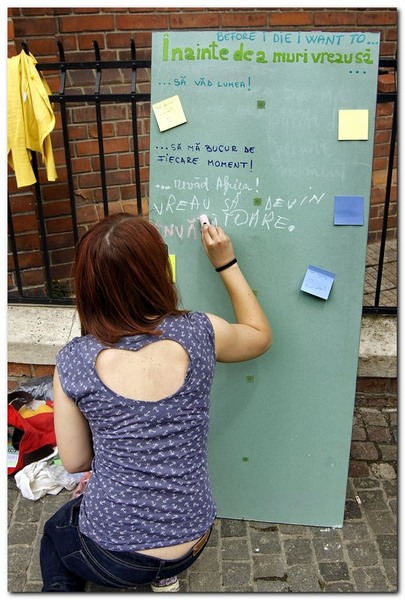 BEFORE I DIE I WANT TO...
Înainte de a muri vreau să
...
...SĂ VĂD LUMEA!
...SĂ MĂ BUCUR DE
FIECARE MOMENT!
...revăd Africa!
VREAU SĂ DEVIN
ÎNVĂȚĂTOARE.